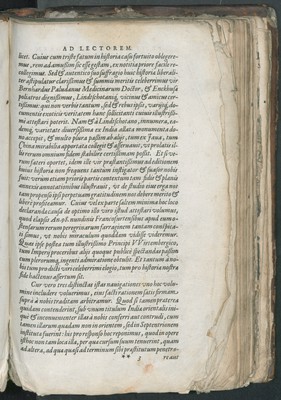 AD LECTOREM.
licet. Cuius cum triste fatum in historia casu fortuito oblegere-
mus, rem adamussim sic esse gestam, ex notitia priore facile re-
collegimus. Sed & autentica sua suffragia huic historiæ liberali-
ter astipulatur clarissimus & summis meritis celeberrimus vir
Bernhardus Paludanus Medicinarum Doctor, & Enchhusæ
poliatros dignissimus, Lindschotani, vicinus & amicus cer-
tissimus: qui non verbis tantum, sed & rebus ipsis, varijsq; do-
cumentis exoticis veritatem hanc sollicitanti cuiuis illustris-
sime attestari poterit. Nam & à Lindschotano, innumera, ea-
demq; varietate diuersissima ex India allata monumenta do-
no accepit, & multo plura passim ab alijs, tum ex Iaua, tum
China mirabilia apportata collegit & asseruauit, vt prolatis il-
lis rerum omnium fidem studiose certissimam possit. Et si ve-
rum fateri oportet, idem ille vir præstantissimus ad editionem
huius historiæ non frequens tantum instigator & suasor nobis
fuit: verum etiam priores partis contextum tam fideli & planis
annexis annotationibus illustrauit, vt de studio eius erga nos
tam propenso ipsis perpetuam gratitudinem nos debere merito &
libere profiteamur. Cuius vel ex parte saltem minima hoc loco
declarandæ causa de optimo illo viro istud attestari volumus,
quod elapsis
stearum rerum peregrinarum farraginem tantam conspica-
ti simus, vt nobis miraculum quoddam vidisse videremur.
Quas ipse postea tum illustrissimo Principi VVirtembergico,
tum Imperij proceribus alijs quoque publice spectandas passim
cum plerorumq; ingenti admiratione obtulit. Et tantum à no-
bis tum pro dicti viri celeberrimi elogio, tum pro historiæ nostræ
fide hactenus assertum sit.
Cur vero tres distinctas istas nauigationes vno hoc volu-
mine includere voluerimus, eius facti rationem satis firmam,
supra à nobis traditam arbitramur. Quod si tamen præterea
quidam contenderint, sub vnum titulum India orientalis ini-
que & inconuenienter illas à nobis conferri aut contrudi, cum
tamen illarum quædam non in orientem, sed in Septentrionem
instituta fuerint: his pro responso hoc reponimus, quod in opere
isthoc non tam loca illa, per quæ cursum suum tenuerint, quam
ad altera, ad quæ quasi ad terminum sibi præstitutum penetra-
** 5